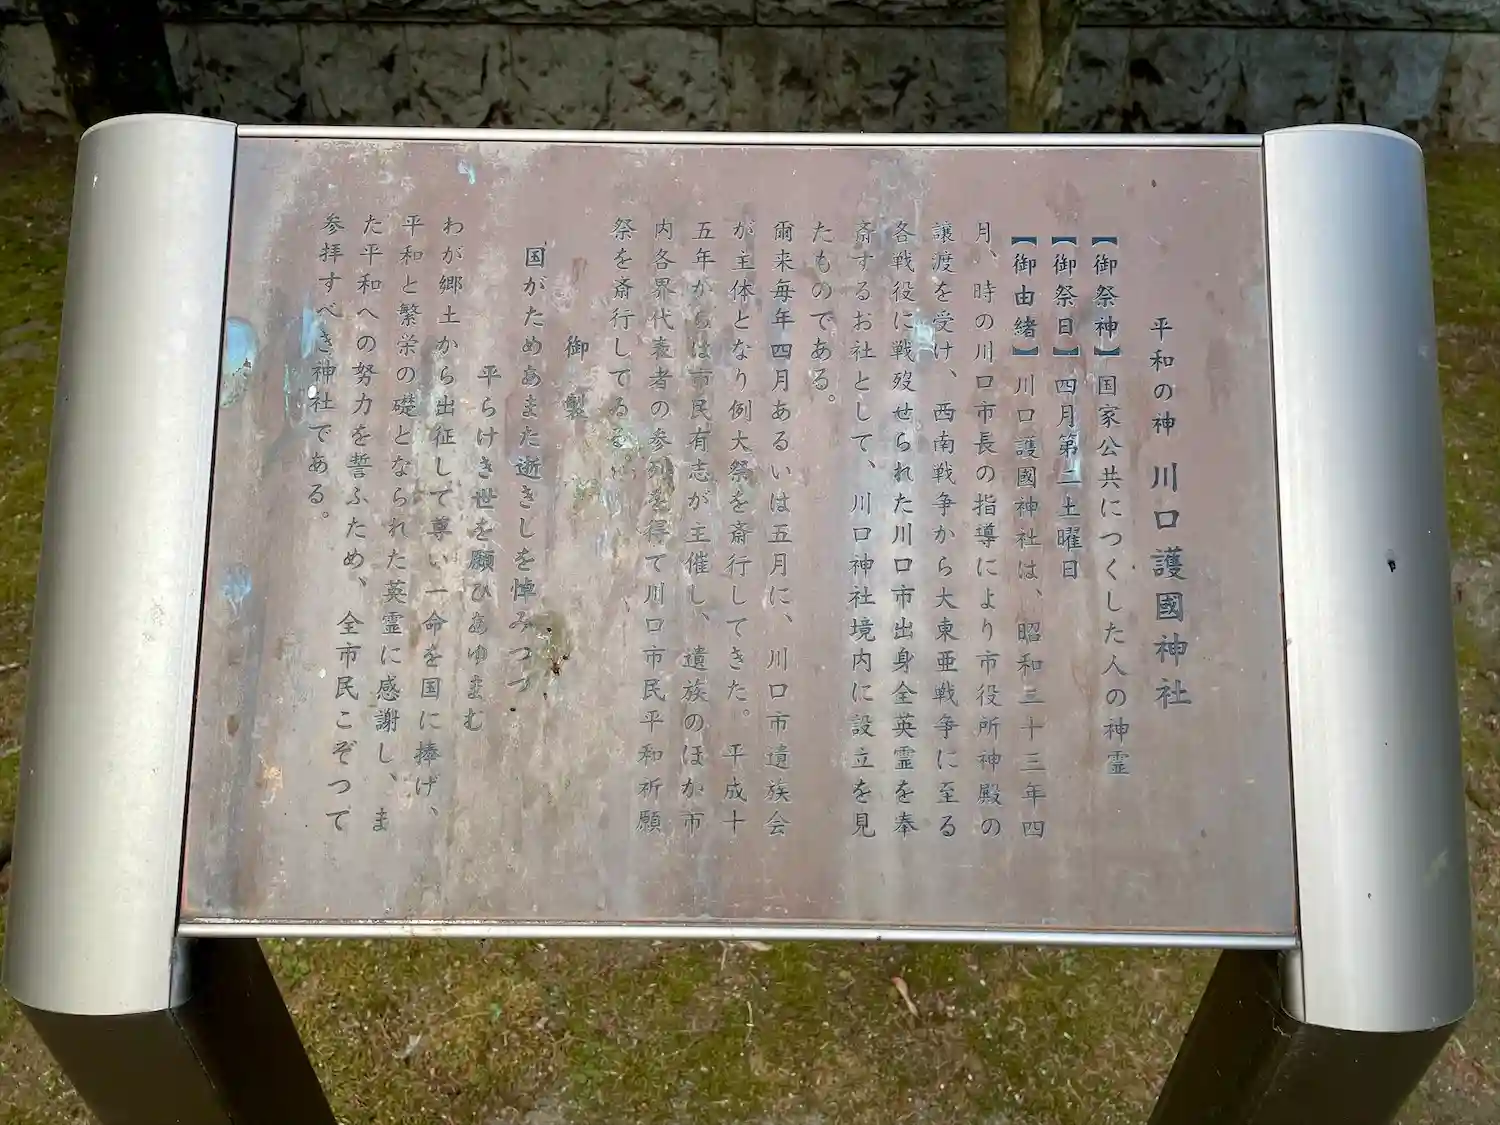 平和の神 川口護國神社
【御祭神】国家公共につくした人の神霊
【御祭日】四月第二土曜日
【御由緒】川口護國神社は、昭和三十三年四
月、時の川口市長の指導により市役所神殿の
譲渡を受け、西南戦争から大東亜戦争に至る
各戦役に戦歿せられた川口市出身全英霊を奉
斎するお社として、川口神社境内に設立を見
たものである。
爾来毎年四月あるいは五月に、川口市遺族会
が主体となり例大祭を斎行してきた。平成十
五年からは市民有志が主催し、遺族のほか市
内各界代表者の参列を得て川口市民平和祈願
祭を斎行してゐる。
御製
国がためあまた逝きしを悼みつつ
平らけき世を願ひあゆまむ
わが郷土から出征して尊い一命を国に捧げ、
平和と繁栄の礎となられた英霊に感謝し、ま
た平和への努力を誓ふため、全市民こぞつて
参拝すべき神社である。